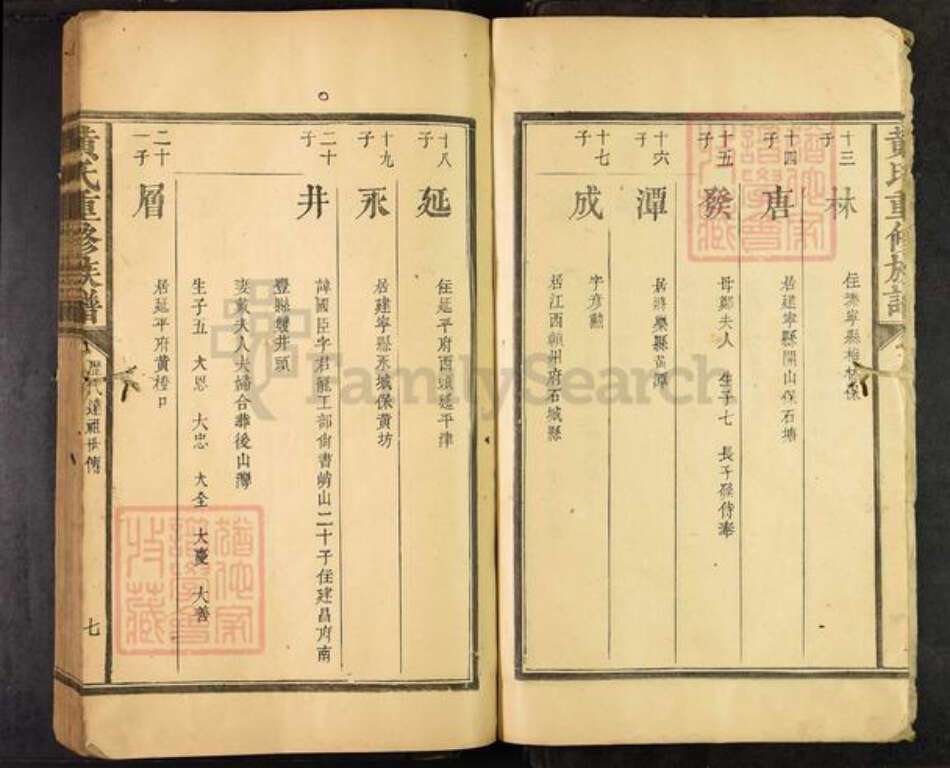 黃氏重修族譜
十三子
林
住泰寧縣梅林保
十四子
唐
居建寧縣開山保石塘
十五子
發
母鄭夫人 生子七 長子 侍
十六子
潭
居將樂縣黃潭
十七子
成
字彥勳
居江西贛州府石城縣
十八子
延
住延平府西頭延平津
十九子
永
居建寧縣永城保黃坊
二十子
井
諱國臣字君龍工部尚書峭山二十子住建昌府南
豐縣雙井頭
妻戴夫人夫婦合葬後山灣
生子五 大恩 大忠 大全 大慶 大善
二十一子
層
居延平府黃橙口
黃氏重修族譜
歷代達祖世傳
七
FamilySearch